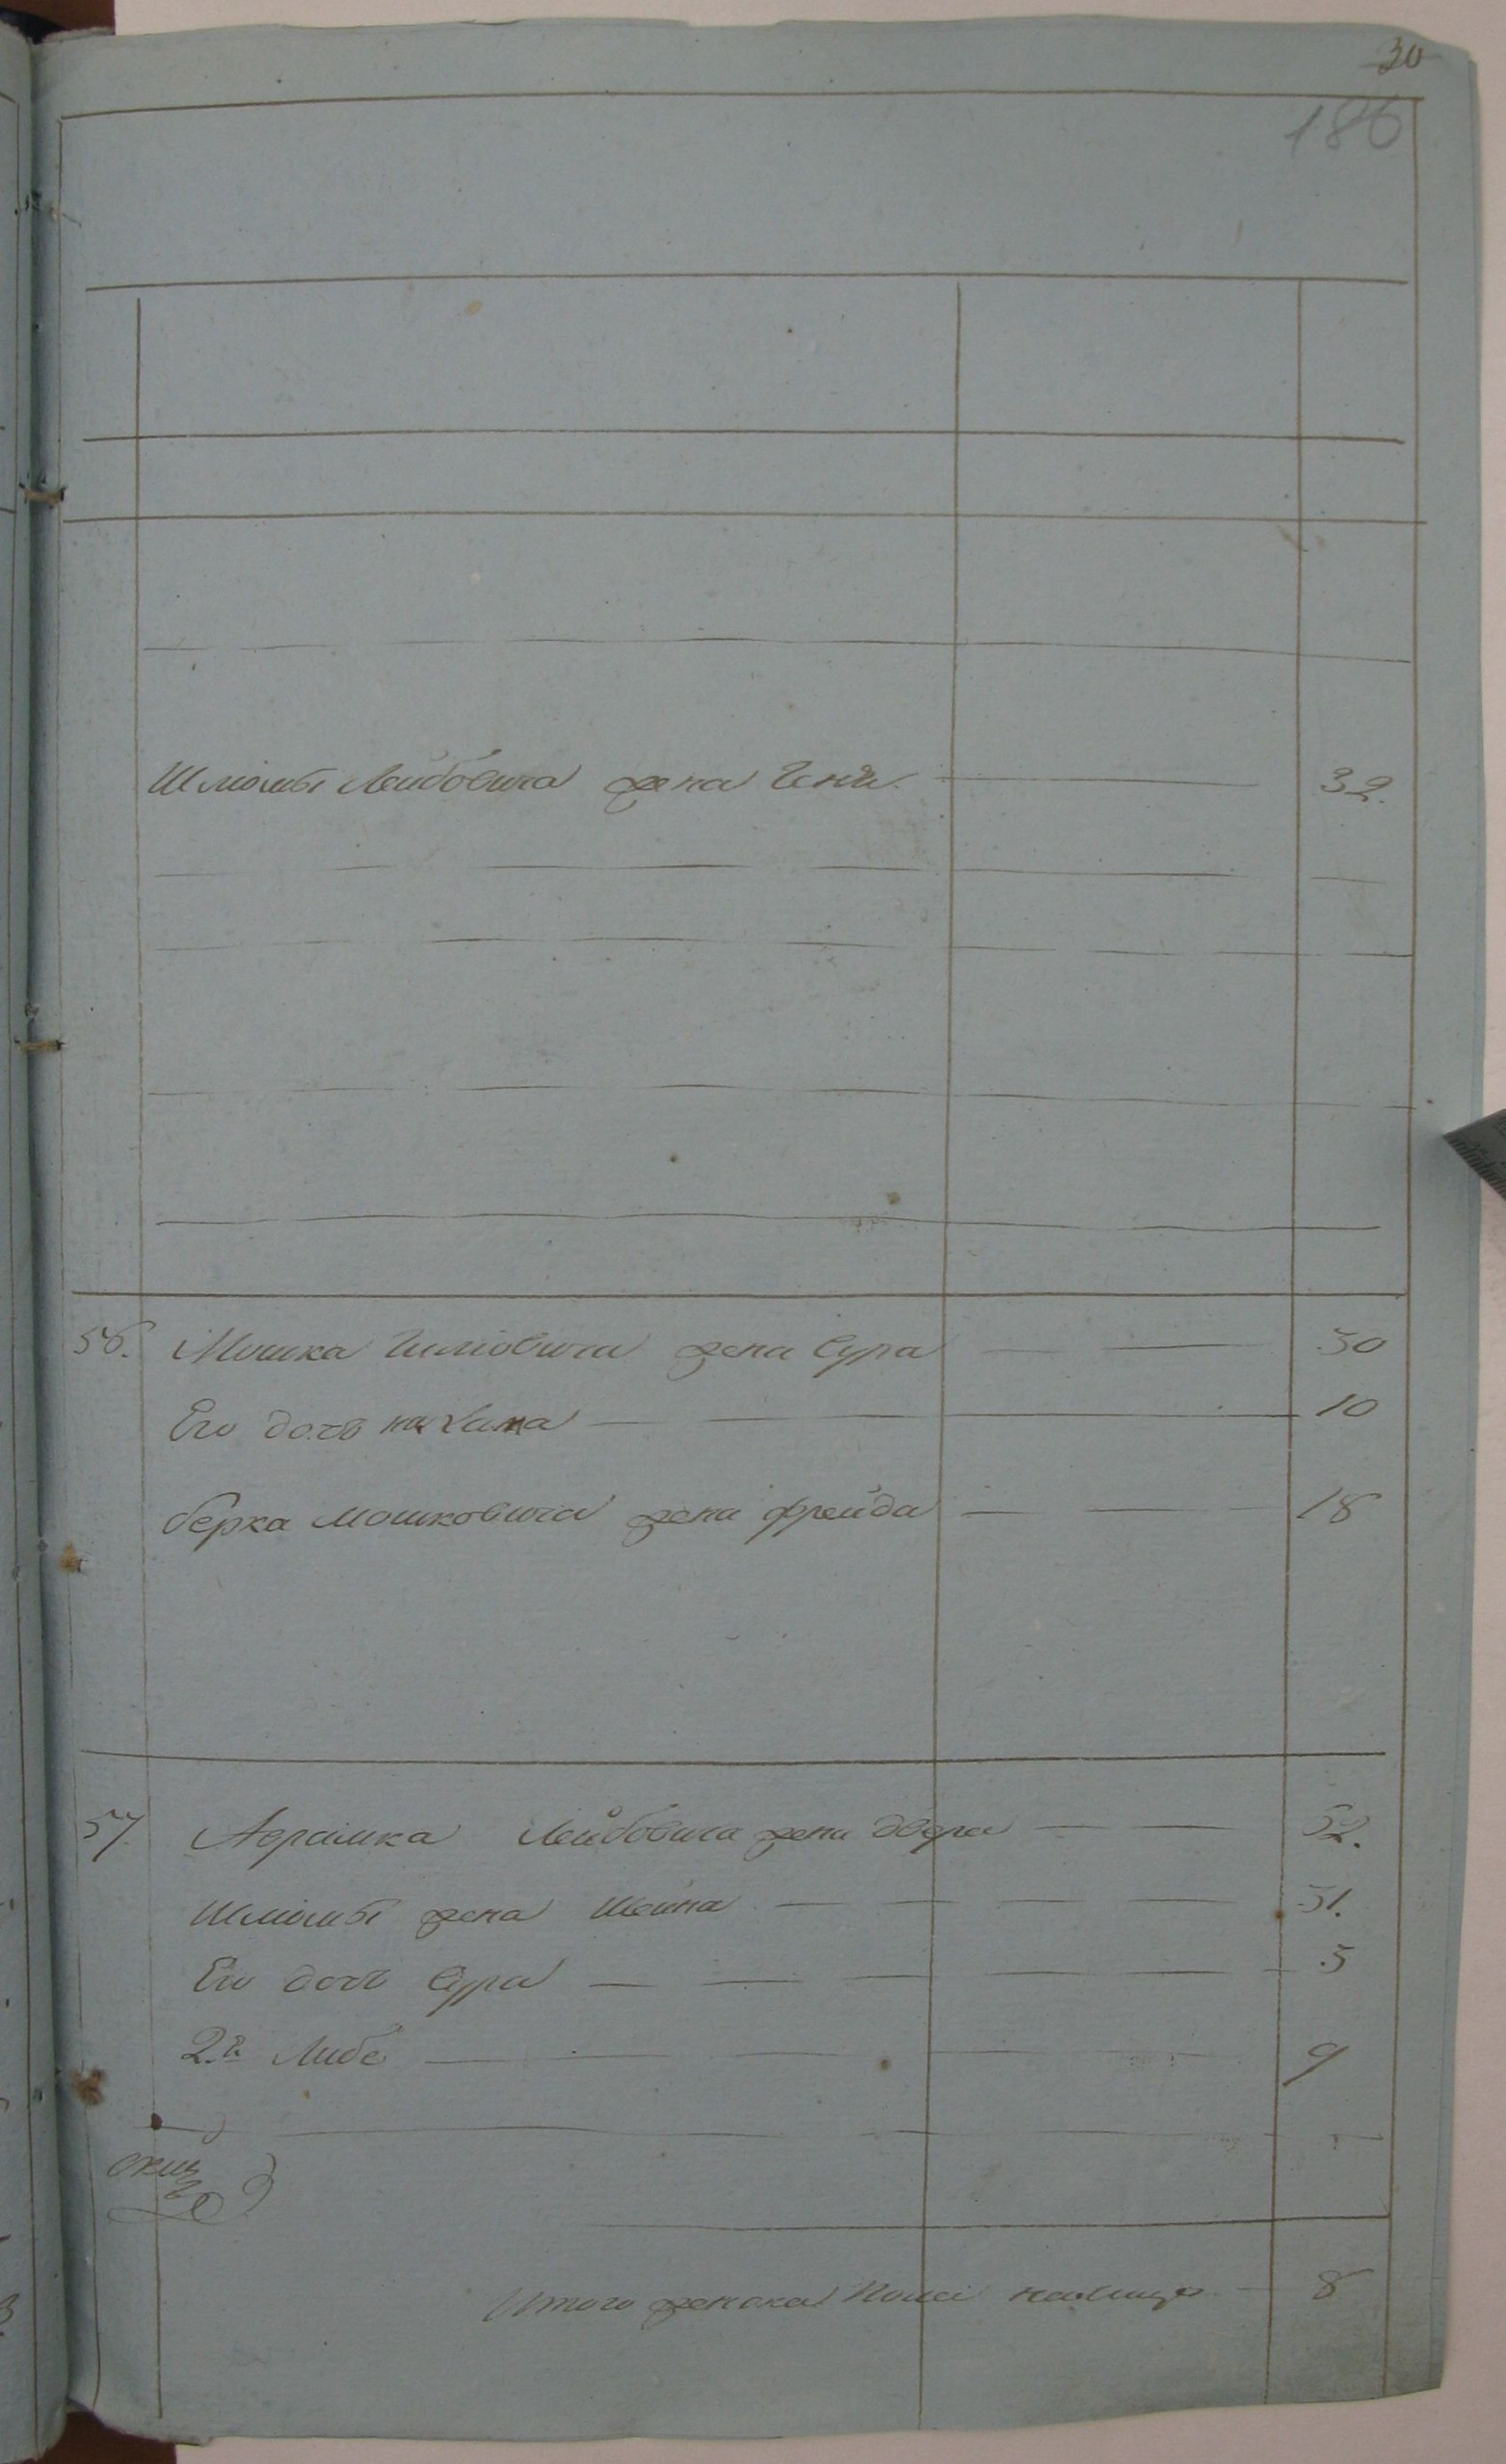 30
186
Шліомы Лейбовича жена Геня 32.
56. Мошка жена Сура 50
Его дочь Нахама 10
Берка Мошковича жена Фрейда 18
57. Абрамка Лейбовича жена Двера 52.
Шліомы жена Шейна 31.
Его дочь Сура 5
2.я Либе 9
Итого женска пола налицо 8